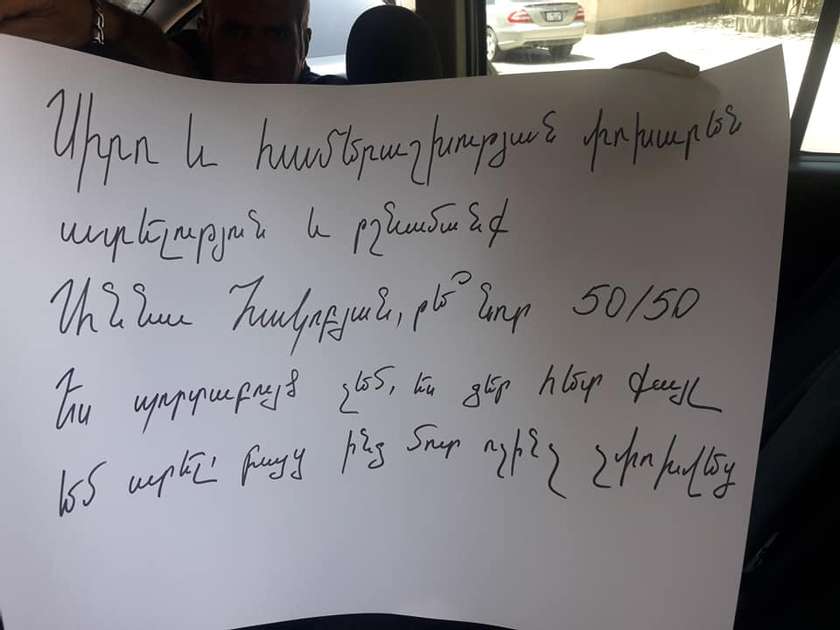 Սիրո և համերաշխության փոխարեն
ատելություն և թշնամանք
Աննա Հակոբյան, թե՞ նոր 50/50
Ես պորտաբույծ չեմ, ես ձեր հետ քայլ
եմ արել՝ բայց ինձ մոտ ոչինչ չփոխվեց